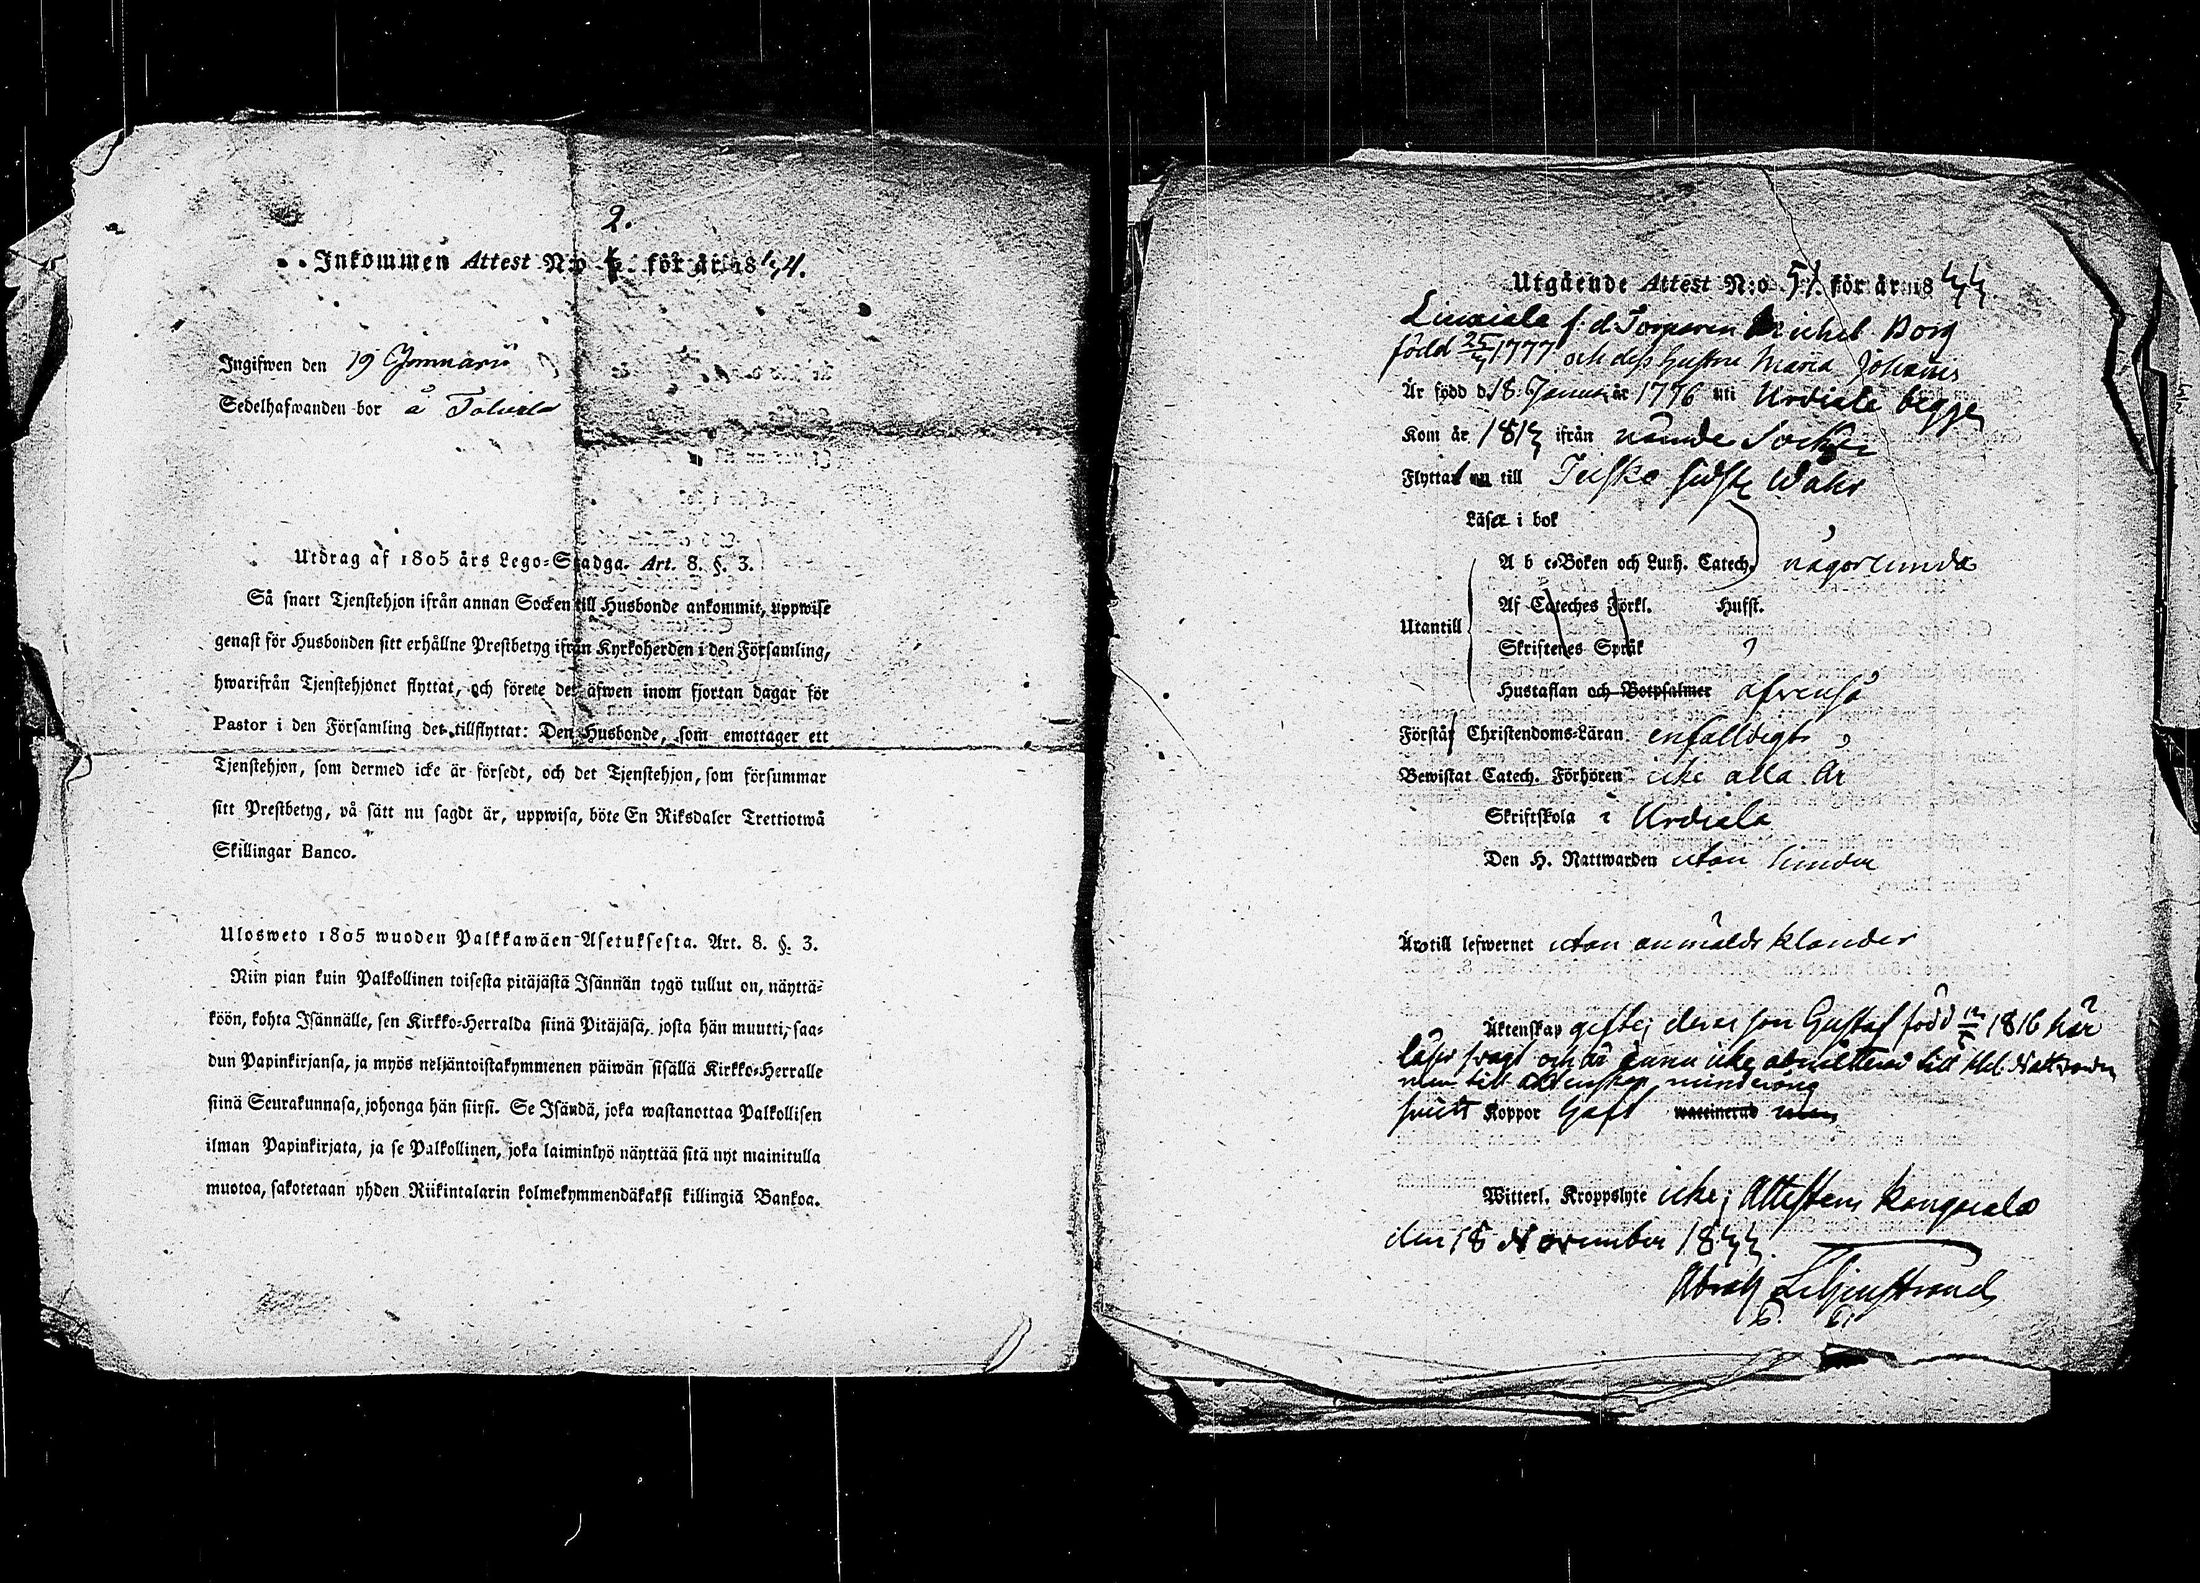 2.
Inkommen Attest N:o för år 1844.
Ingifwen den 19 Januari
Sedelhafwanden bor å
Utdrag af 1805 års Lego-Stadga. Art. 8. §. 3.
Så snart Tjenstehjon ifrån annan Socken till Husbonde ankommit, uppwise
genast för Husbonden sitt erhållne Prestbetyg ifrån Kyrkoherden i den Församling,
hwarifrån Tjenstehjonet flyttat, och förete det äfwen inom fjortan dagar för
Pastor i den Församling det tillflyttat: Den Husbonde, som emottager ett
Tjenstehjon, som dermed icke är försedt, och det Tjenstehjon, som försummar
sitt Prestbetyg, på sätt nu sagdt är, uppwisa, böte En Riksdaler Trettiotwå
Skillingar Banco.
Ulosweto 1805 wuoden Palkkawäen-Asetuksesta. Art. 8. §. 3.
Niin pian kuin Palkollinen toisesta pitäjästä Isännän tygö tullut on, näyttä-
köön, kohta Isännälle, sen Kirkko-Herralda siinä Pitäjäsä, josta hän muutti, saa-
dun Papinkirjansa, ja myös neljäntoistakymmenen päiwän sisällä Kirkko-Herralle
siinä Seurakunnasa, johonga hän siirsi. Se Isändä, joka wastanottaa Palkollisen
ilman Papinkirjata, ja se Palkollinen, joka laiminlyö näyttää sitä nyt mainitulla
muotoa, sakotetaan yhden Riikintalarin kolmekymmendäkaksi killingiä Bankoa.
Utgående Attest N:o 51 för år 1844
Liuxiala f. d. Torparen Michel Borg
född 25/4 1777 och dess hustru Maria Johans
Är född d 18 Januari år 1776 uti Urdiala begge
Kom år 1814 ifrån nämde Socken
Flyttat nu till
Läser i bok
A b c-Boken och Luth. Catech. någorlunda
Af Cateches Förkl. Husf.
Utantill
Skriftenes Språk
Hustaflan och Botpsalmer afvenså
Förstår Christendoms-Läran enfalldigt
Bewistat Catech. Förhören icke alla år
Skriftskola i Urdiala
Den H. Nattwarden utan hinder
Är till lefwernet utan anmäldt klander
Äktenskap gifte; deras son Gustaf född 12/5 1816 här
läser svagt och är ännu icke admitterad till Hel. Nattvarden
men till äktenskap minderårig
Koppor haft waccinerad men
Witterl. Kroppslyte icke; Attesterar Kangasala
den 18 November 1844.
Abrah Liljenstrand